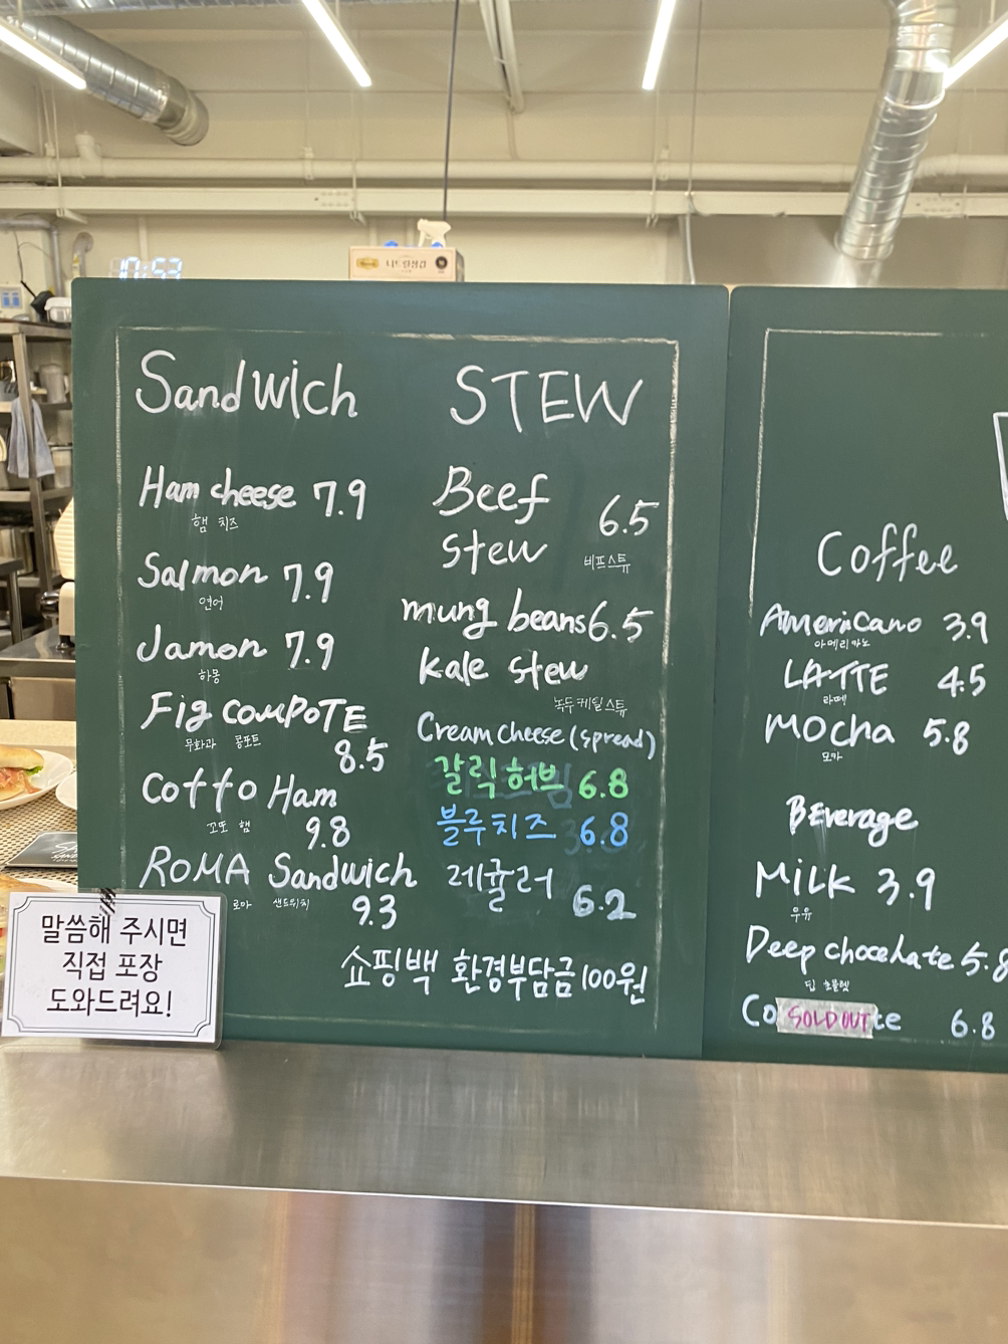 17:53
니트릴장갑
Sandwich
Ham cheese 7.9
햄 치즈
Salmon 7.9
연어
Jamon 7.9
하몽
Fig COMPOTE
무화과 콩포트
8.5
Cotto Ham
꼬또 햄
9.8
ROMA Sandwich
로마 샌드위치
9.3
STEW
Beef
6.5
stew
비프스튜
mung beans 6.5
kale stew
녹두케일스튜
Cream cheese (spread)
갈릭허브 6.8
블루치즈 6.8
레귤러
6.2
쇼핑백 환경부담금 100원
말씀해 주시면
직접 포장
도와드려요!
Coffee
Americano 3.9
아메리카노
LATTE 4.5
라떼
MOcha 5.8
모카
BEverage
MiLK 3.9
우유
Deep chocolate 5.8
딥 초콜렛
Co SOLD OUT te 6.8